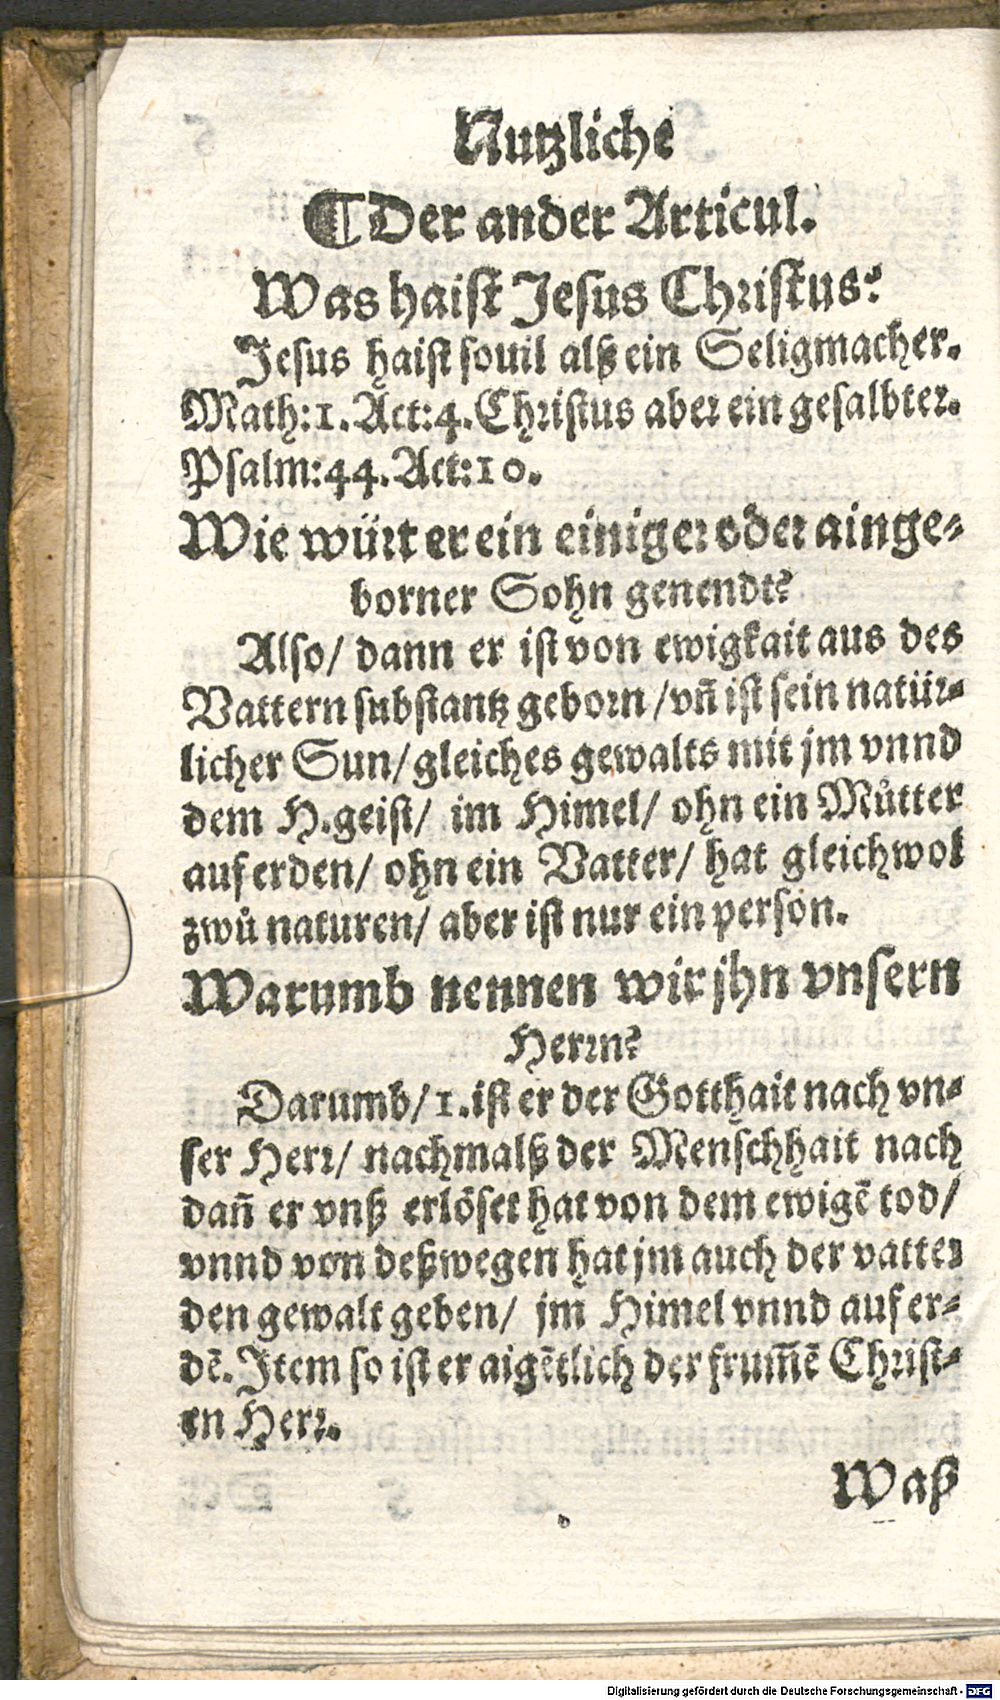 Nutzliche
¶ Der ander Articul.
Was haist Jesus Christus?
Jesus haist souil alß ein Seligmacher.
Math:1. Act:4. Christus aber ein gesalbter.
Psalm:44. Act:10.
Wie würt er ein einiger oder ainge⸗
borner Sohn genendt?
Also/ dann er ist von ewigkait aus des
Vattern substantz geborn/ vñ ist sein natür⸗
licher Sun/ gleiches gewalts mit jm vnnd
dem H.geist/ im Himel/ ohn ein Můtter
auf erden/ ohn ein Vatter/ hat gleichwol
zwů naturen/ aber ist nur ein person.
Warumb nennen wir jhn vnsern
Herrn?
Darumb/ 1. ist er der Gotthait nach vn⸗
ser Herr/ nachmalß der Menschhait nach
dañ er vnß erlöset hat von dem ewigē tod/
vnnd von deßwegen hat jm auch der vatter
den gewalt geben/ jm Himel vnnd auf er⸗
dē. Item so ist er aigētlich der frum̃ē Christ⸗
en Herr.
Waß
Digitalisierung gefördert durch die Deutsche Forschungsgemeinschaft - DFG